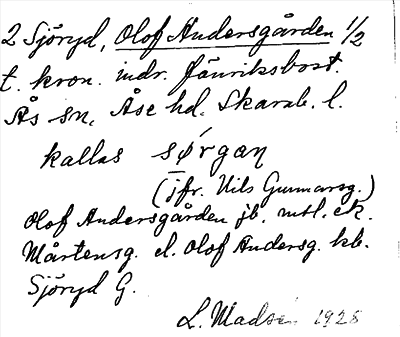 2 Sjöryd, Olof Andersgården 1/2
t. kron. indr. fänriksbost.
Ås sn, Åse hd. Skarab. l.
kallas sørgan
(jfr. Nils Gunnarsg.)
Olof Andersgården jb. mtl. ek.
Mårtensg. el. Olof Andersg. kb.
Sjöryd G.
L. Madsén 1928